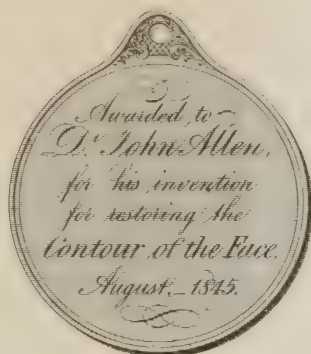 Awarded to
Dr. John Allen,
for his invention
for restoring the
Contour of the Face.
August, 1845.